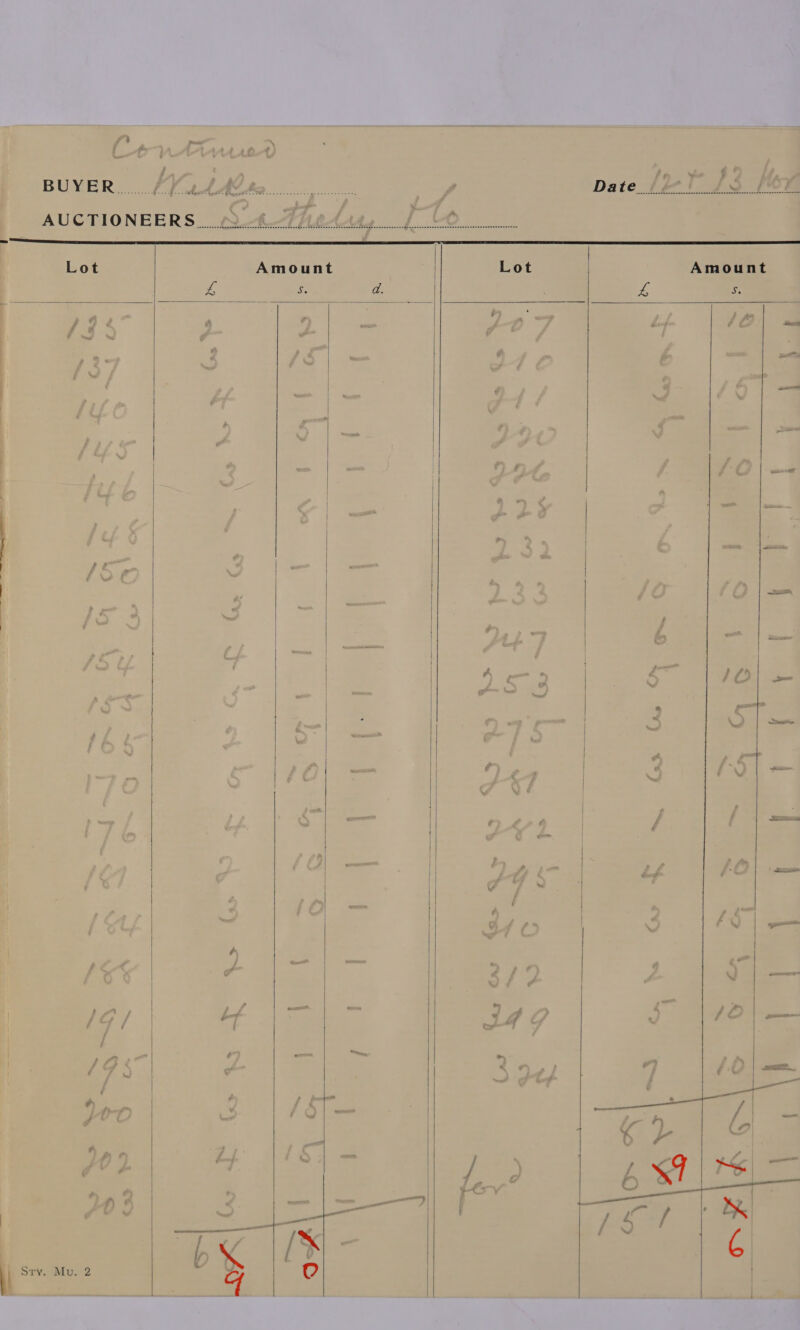 Continued
BUYER
AUCTIONEERS Sotheby, & Co
Date 12th & 13 Nov
Lot Amount Lot Amount
£ s. d. £ s.
135 2 2 - 207 4 10 -
137 3 15 - 210 6 - -
140 4 - - 211 3 15 -
145 2 5 - 220 5 - -
146 3 - - 226 1 10 -
148 1 8 - 228 2 - -
150 3 - - 232 6 - -
153 3 - - 233 10 10 -
154 4 - - 247 6 - -
155 5 - - 253 5 10 -
165 2 5 - 275 3 5 -
170 5 10 - 281 3 15 -
176 4 5 - 282 1 1 -
181 2 10 - 295 4 10 -
184 3 10 - 310 3 15 -
188 2 - - 312 2 5 -
191 4 - - 319 5 10 -
195 2 - - 324 7 10 -
200 3 15 - 82 6 -
202 4 15 - ford 6 9
203 3 - - 151
6 9 0 6
Srv. Mu. 2